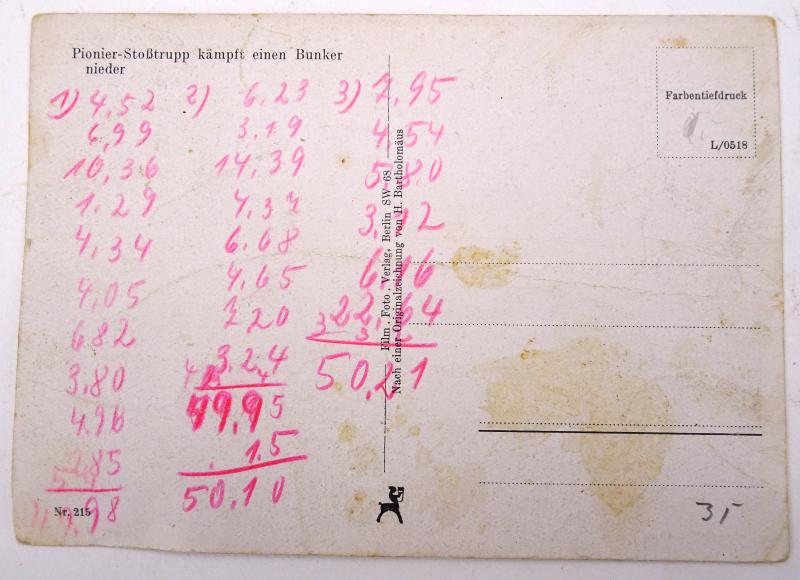 Pionier-Stoßtrupp kämpft einen Bunker
nieder
Farbentiefdruck
L/0518
1) 4,52
6,99
10,36
1.29
4,34
4,05
682
3,80
4,96
2) 6.23
3.19
14,39
6.68
4,65
7 20
3.24
49,95
.15
50,10
3) 7,95
4,54
5,80
3,12
6,16
22,64
50,21
Film . Foto . Verlag, Berlin SW-68
Nach einer Originalzeichnung von H. Bartholomäus
Nr. 215
3,-